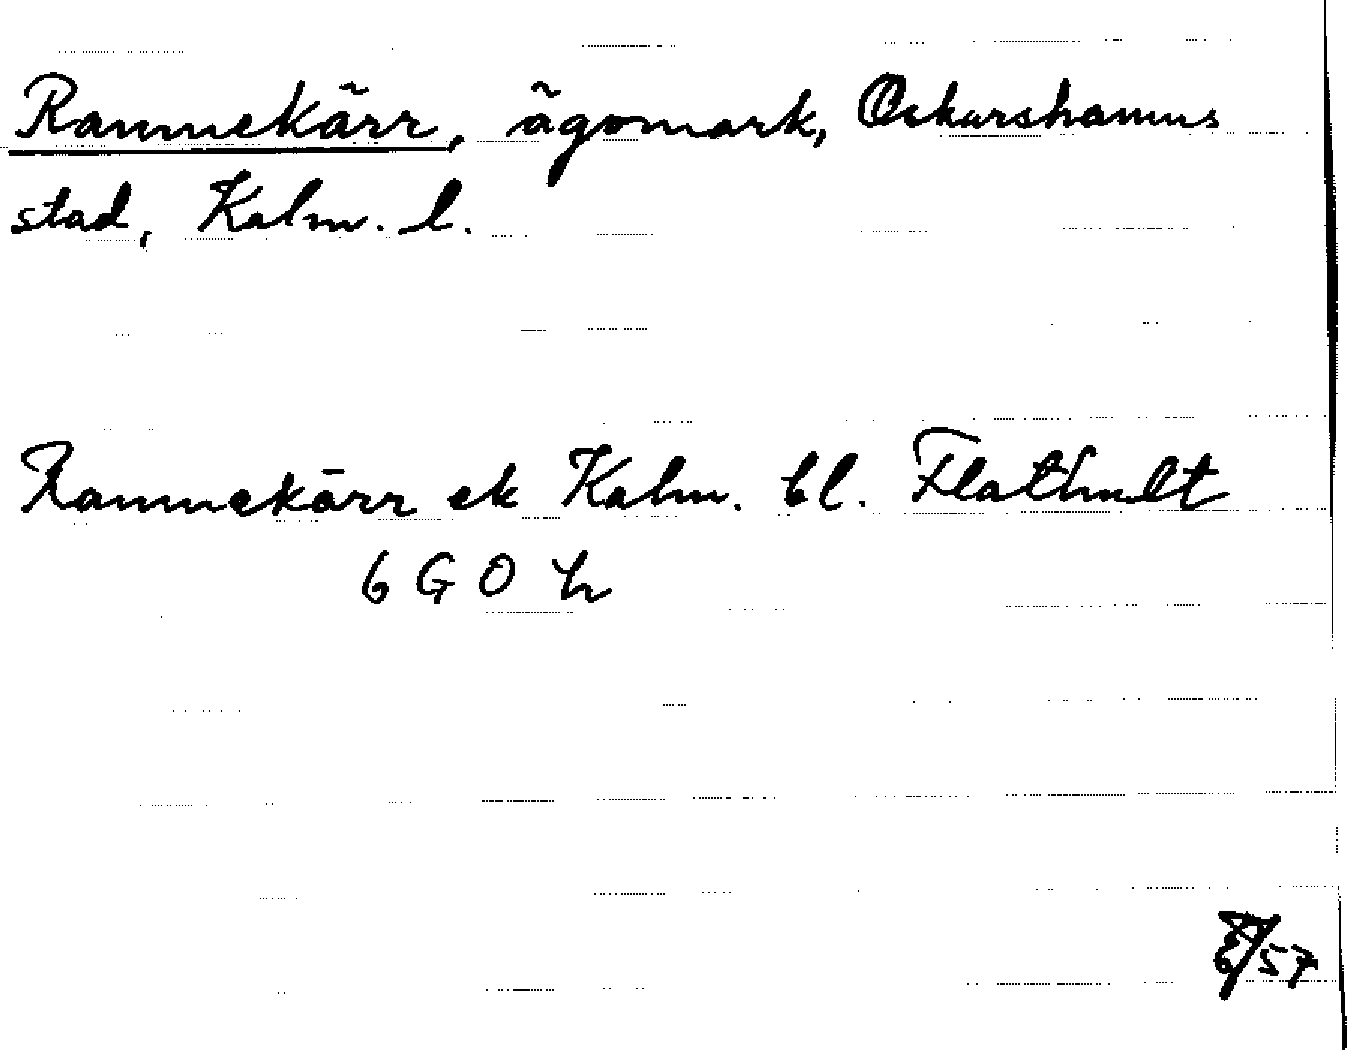 Rannekärr, ägomark, Oskarshamns
stad, Kalm. l.
Rannekärr ek Kalm. bl. Flathult
6 G O h
/57